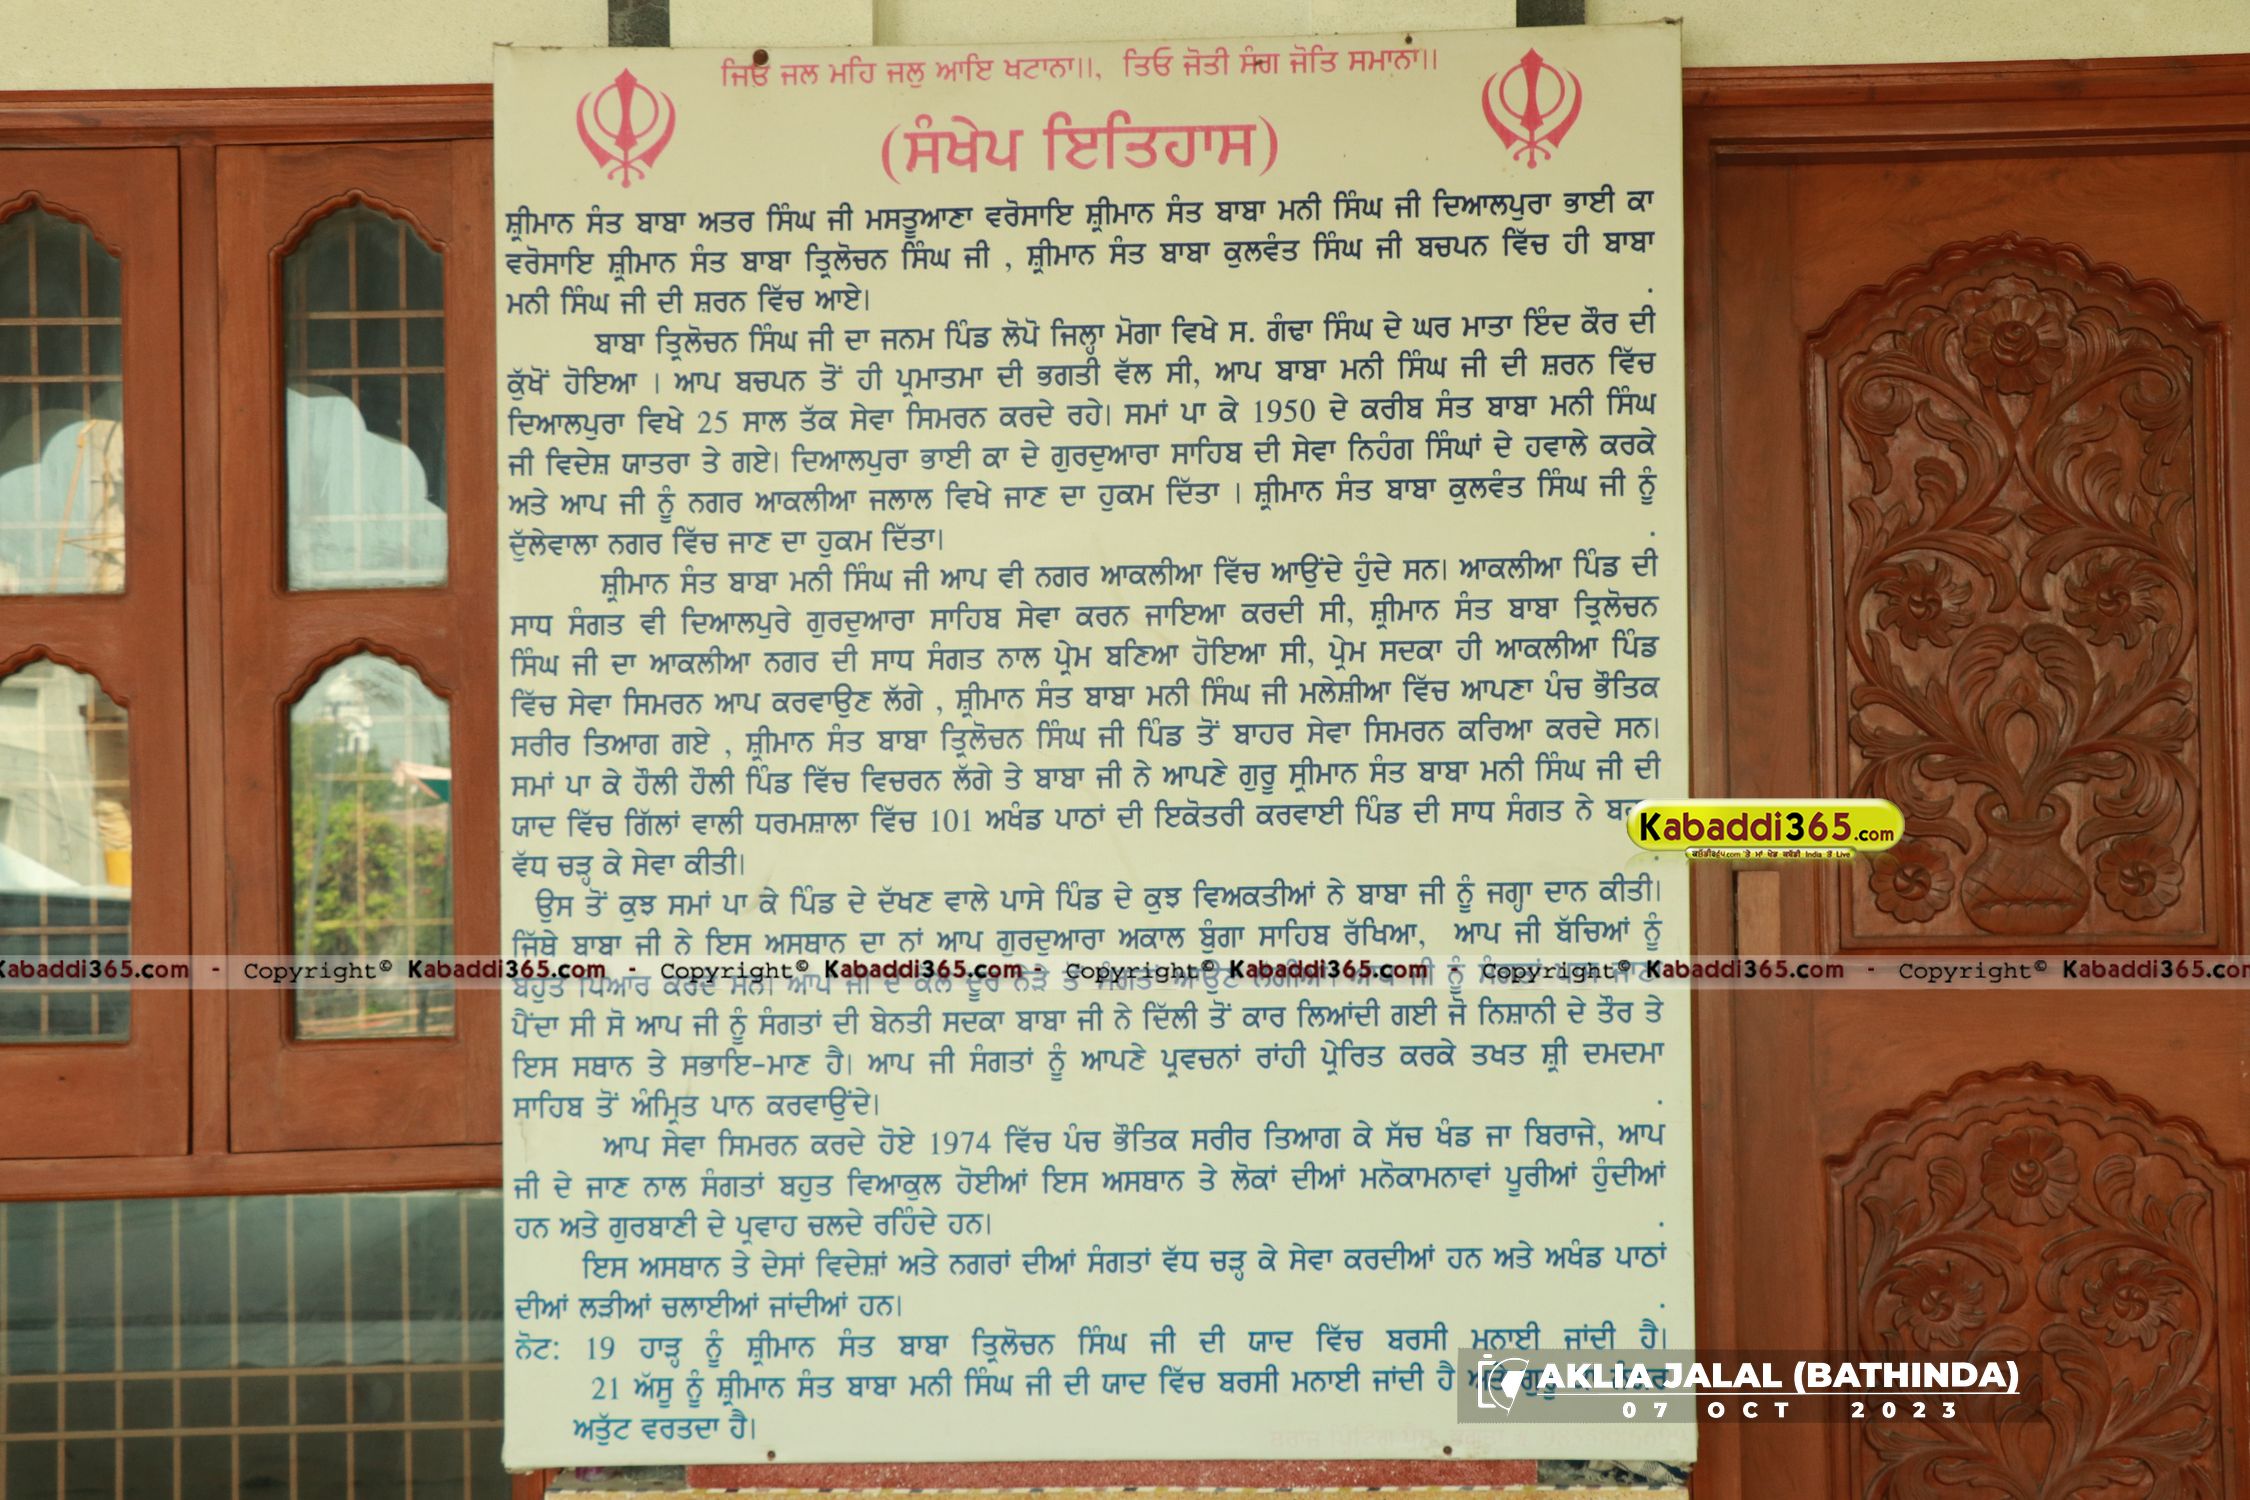 ਜਿਓ ਜਲ ਮਹਿ ਜਲੁ ਆਇ ਖਟਾਨਾ॥, ਤਿਓ ਜੋਤੀ ਸੰਗ ਜੋਤਿ ਸਮਾਨਾ॥
(ਸੰਖੇਪ ਇਤਿਹਾਸ)
ਸ਼੍ਰੀਮਾਨ ਸੰਤ ਬਾਬਾ ਅਤਰ ਸਿੰਘ ਜੀ ਮਸਤੂਆਣਾ ਵਰੋਸਾਇ ਸ਼੍ਰੀਮਾਨ ਸੰਤ ਬਾਬਾ ਮਨੀ ਸਿੰਘ ਜੀ ਦਿਆਲਪੁਰਾ ਭਾਈ ਕਾ
ਵਰੋਸਾਇ ਸ਼੍ਰੀਮਾਨ ਸੰਤ ਬਾਬਾ ਤ੍ਰਿਲੋਚਨ ਸਿੰਘ ਜੀ , ਸ਼੍ਰੀਮਾਨ ਸੰਤ ਬਾਬਾ ਕੁਲਵੰਤ ਸਿੰਘ ਜੀ ਬਚਪਨ ਵਿੱਚ ਹੀ ਬਾਬਾ
ਮਨੀ ਸਿੰਘ ਜੀ ਦੀ ਸ਼ਰਨ ਵਿੱਚ ਆਏ।
ਬਾਬਾ ਤ੍ਰਿਲੋਚਨ ਸਿੰਘ ਜੀ ਦਾ ਜਨਮ ਪਿੰਡ ਲੋਪੋ ਜਿਲ੍ਹਾ ਮੋਗਾ ਵਿਖੇ ਸ. ਗੰਢਾ ਸਿੰਘ ਦੇ ਘਰ ਮਾਤਾ ਇੰਦ ਕੌਰ ਦੀ
ਕੁੱਖੋਂ ਹੋਇਆ । ਆਪ ਬਚਪਨ ਤੋਂ ਹੀ ਪ੍ਰਮਾਤਮਾ ਦੀ ਭਗਤੀ ਵੱਲ ਸੀ, ਆਪ ਬਾਬਾ ਮਨੀ ਸਿੰਘ ਜੀ ਦੀ ਸ਼ਰਨ ਵਿੱਚ
ਦਿਆਲਪੁਰਾ ਵਿਖੇ 25 ਸਾਲ ਤੱਕ ਸੇਵਾ ਸਿਮਰਨ ਕਰਦੇ ਰਹੇ। ਸਮਾਂ ਪਾ ਕੇ 1950 ਦੇ ਕਰੀਬ ਸੰਤ ਬਾਬਾ ਮਨੀ ਸਿੰਘ
ਜੀ ਵਿਦੇਸ਼ ਯਾਤਰਾ ਤੇ ਗਏ। ਦਿਆਲਪੁਰਾ ਭਾਈ ਕਾ ਦੇ ਗੁਰਦੁਆਰਾ ਸਾਹਿਬ ਦੀ ਸੇਵਾ ਨਿਹੰਗ ਸਿੰਘਾਂ ਦੇ ਹਵਾਲੇ ਕਰਕੇ
ਅਤੇ ਆਪ ਜੀ ਨੂੰ ਨਗਰ ਆਕਲੀਆ ਜਲਾਲ ਵਿਖੇ ਜਾਣ ਦਾ ਹੁਕਮ ਦਿੱਤਾ । ਸ਼੍ਰੀਮਾਨ ਸੰਤ ਬਾਬਾ ਕੁਲਵੰਤ ਸਿੰਘ ਜੀ ਨੂੰ
ਦੁੱਲੇਵਾਲਾ ਨਗਰ ਵਿੱਚ ਜਾਣ ਦਾ ਹੁਕਮ ਦਿੱਤਾ।
ਸ਼੍ਰੀਮਾਨ ਸੰਤ ਬਾਬਾ ਮਨੀ ਸਿੰਘ ਜੀ ਆਪ ਵੀ ਨਗਰ ਆਕਲੀਆ ਵਿੱਚ ਆਉਂਦੇ ਹੁੰਦੇ ਸਨ। ਆਕਲੀਆ ਪਿੰਡ ਦੀ
ਸਾਧ ਸੰਗਤ ਵੀ ਦਿਆਲਪੁਰੇ ਗੁਰਦੁਆਰਾ ਸਾਹਿਬ ਸੇਵਾ ਕਰਨ ਜਾਇਆ ਕਰਦੀ ਸੀ, ਸ਼੍ਰੀਮਾਨ ਸੰਤ ਬਾਬਾ ਤ੍ਰਿਲੋਚਨ
ਸਿੰਘ ਜੀ ਦਾ ਆਕਲੀਆ ਨਗਰ ਦੀ ਸਾਧ ਸੰਗਤ ਨਾਲ ਪ੍ਰੇਮ ਬਣਿਆ ਹੋਇਆ ਸੀ, ਪ੍ਰੇਮ ਸਦਕਾ ਹੀ ਆਕਲੀਆ ਪਿੰਡ
ਵਿੱਚ ਸੇਵਾ ਸਿਮਰਨ ਆਪ ਕਰਵਾਉਣ ਲੱਗੇ , ਸ਼੍ਰੀਮਾਨ ਸੰਤ ਬਾਬਾ ਮਨੀ ਸਿੰਘ ਜੀ ਮਲੇਸ਼ੀਆ ਵਿੱਚ ਆਪਣਾ ਪੰਚ ਭੌਤਿਕ
ਸਰੀਰ ਤਿਆਗ ਗਏ , ਸ਼੍ਰੀਮਾਨ ਸੰਤ ਬਾਬਾ ਤ੍ਰਿਲੋਚਨ ਸਿੰਘ ਜੀ ਪਿੰਡ ਤੋਂ ਬਾਹਰ ਸੇਵਾ ਸਿਮਰਨ ਕਰਿਆ ਕਰਦੇ ਸਨ।
ਸਮਾਂ ਪਾ ਕੇ ਹੌਲੀ ਹੌਲੀ ਪਿੰਡ ਵਿੱਚ ਵਿਚਰਨ ਲੱਗੇ ਤੇ ਬਾਬਾ ਜੀ ਨੇ ਆਪਣੇ ਗੁਰੂ ਸ਼੍ਰੀਮਾਨ ਸੰਤ ਬਾਬਾ ਮਨੀ ਸਿੰਘ ਜੀ ਦੀ
ਯਾਦ ਵਿੱਚ ਗਿੱਲਾਂ ਵਾਲੀ ਧਰਮਸ਼ਾਲਾ ਵਿੱਚ 101 ਅਖੰਡ ਪਾਠਾਂ ਦੀ ਇਕੋਤਰੀ ਕਰਵਾਈ ਪਿੰਡ ਦੀ ਸਾਧ ਸੰਗਤ ਨੇ
ਵੱਧ ਚੜ੍ਹ ਕੇ ਸੇਵਾ ਕੀਤੀ।
ਉਸ ਤੋਂ ਕੁਝ ਸਮਾਂ ਪਾ ਕੇ ਪਿੰਡ ਦੇ ਦੱਖਣ ਵਾਲੇ ਪਾਸੇ ਪਿੰਡ ਦੇ ਕੁਝ ਵਿਅਕਤੀਆਂ ਨੇ ਬਾਬਾ ਜੀ ਨੂੰ ਜਗ੍ਹਾ ਦਾਨ ਕੀਤੀ।
ਜਿੱਥੇ ਬਾਬਾ ਜੀ ਨੇ ਇਸ ਅਸਥਾਨ ਦਾ ਨਾਂ ਆਪ ਗੁਰਦੁਆਰਾ ਅਕਾਲ ਬੁੰਗਾ ਸਾਹਿਬ ਰੱਖਿਆ, ਆਪ ਜੀ ਬੱਚਿਆਂ ਨੂੰ
Kabaddi365.com - Copyright© Kabaddi365.com - Copyright© Kabaddi365.com - Copyright© Kabaddi365.com - Copyright© Kabaddi365.com - Copyright© Kabaddi365.com
ਬਹੁਤ ਪਿਆਰ ਕਰਦੇ ਸਨ। ਆਪ ਜੀ ਦੇ ਕੋਲ ਦੂਰ ਨੇੜੇ ਤੋਂ ਸੰਗਤਾਂ ਆਉਣ ਲੱਗੀਆਂ। ਜੀ ਨੂੰ
ਪੈਂਦਾ ਸੀ ਸੋ ਆਪ ਜੀ ਨੂੰ ਸੰਗਤਾਂ ਦੀ ਬੇਨਤੀ ਸਦਕਾ ਬਾਬਾ ਜੀ ਨੇ ਦਿੱਲੀ ਤੋਂ ਕਾਰ ਲਿਆਂਦੀ ਗਈ ਜੋ ਨਿਸ਼ਾਨੀ ਦੇ ਤੌਰ ਤੇ
ਇਸ ਸਥਾਨ ਤੇ ਸਭਾਇ-ਮਾਣ ਹੈ। ਆਪ ਜੀ ਸੰਗਤਾਂ ਨੂੰ ਆਪਣੇ ਪ੍ਰਵਚਨਾਂ ਰਾਂਹੀ ਪ੍ਰੇਰਿਤ ਕਰਕੇ ਤਖਤ ਸ਼੍ਰੀ ਦਮਦਮਾ
ਸਾਹਿਬ ਤੋਂ ਅੰਮ੍ਰਿਤ ਪਾਨ ਕਰਵਾਉਂਦੇ।
ਆਪ ਸੇਵਾ ਸਿਮਰਨ ਕਰਦੇ ਹੋਏ 1974 ਵਿੱਚ ਪੰਚ ਭੌਤਿਕ ਸਰੀਰ ਤਿਆਗ ਕੇ ਸੱਚ ਖੰਡ ਜਾ ਬਿਰਾਜੇ, ਆਪ
ਜੀ ਦੇ ਜਾਣ ਨਾਲ ਸੰਗਤਾਂ ਬਹੁਤ ਵਿਆਕੁਲ ਹੋਈਆਂ ਇਸ ਅਸਥਾਨ ਤੇ ਲੋਕਾਂ ਦੀਆਂ ਮਨੋਕਾਮਨਾਵਾਂ ਪੂਰੀਆਂ ਹੁੰਦੀਆਂ
ਹਨ ਅਤੇ ਗੁਰਬਾਣੀ ਦੇ ਪ੍ਰਵਾਹ ਚਲਦੇ ਰਹਿੰਦੇ ਹਨ।
ਇਸ ਅਸਥਾਨ ਤੇ ਦੇਸਾਂ ਵਿਦੇਸ਼ਾਂ ਅਤੇ ਨਗਰਾਂ ਦੀਆਂ ਸੰਗਤਾਂ ਵੱਧ ਚੜ੍ਹ ਕੇ ਸੇਵਾ ਕਰਦੀਆਂ ਹਨ ਅਤੇ ਅਖੰਡ ਪਾਠਾਂ
ਦੀਆਂ ਲੜੀਆਂ ਚਲਾਈਆਂ ਜਾਂਦੀਆਂ ਹਨ।
ਨੋਟ: 19 ਹਾੜ੍ਹ ਨੂੰ ਸ਼੍ਰੀਮਾਨ ਸੰਤ ਬਾਬਾ ਤ੍ਰਿਲੋਚਨ ਸਿੰਘ ਜੀ ਦੀ ਯਾਦ ਵਿੱਚ ਬਰਸੀ ਮਨਾਈ ਜਾਂਦੀ ਹੈ।
21 ਅੱਸੂ ਨੂੰ ਸ਼੍ਰੀਮਾਨ ਸੰਤ ਬਾਬਾ ਮਨੀ ਸਿੰਘ ਜੀ ਦੀ ਯਾਦ ਵਿੱਚ ਬਰਸੀ ਮਨਾਈ ਜਾਂਦੀ ਹੈ
ਅਤੁੱਟ ਵਰਤਦਾ ਹੈ।
Kabaddi365.com
AKLIA JALAL (BATHINDA)
07 OCT 2023